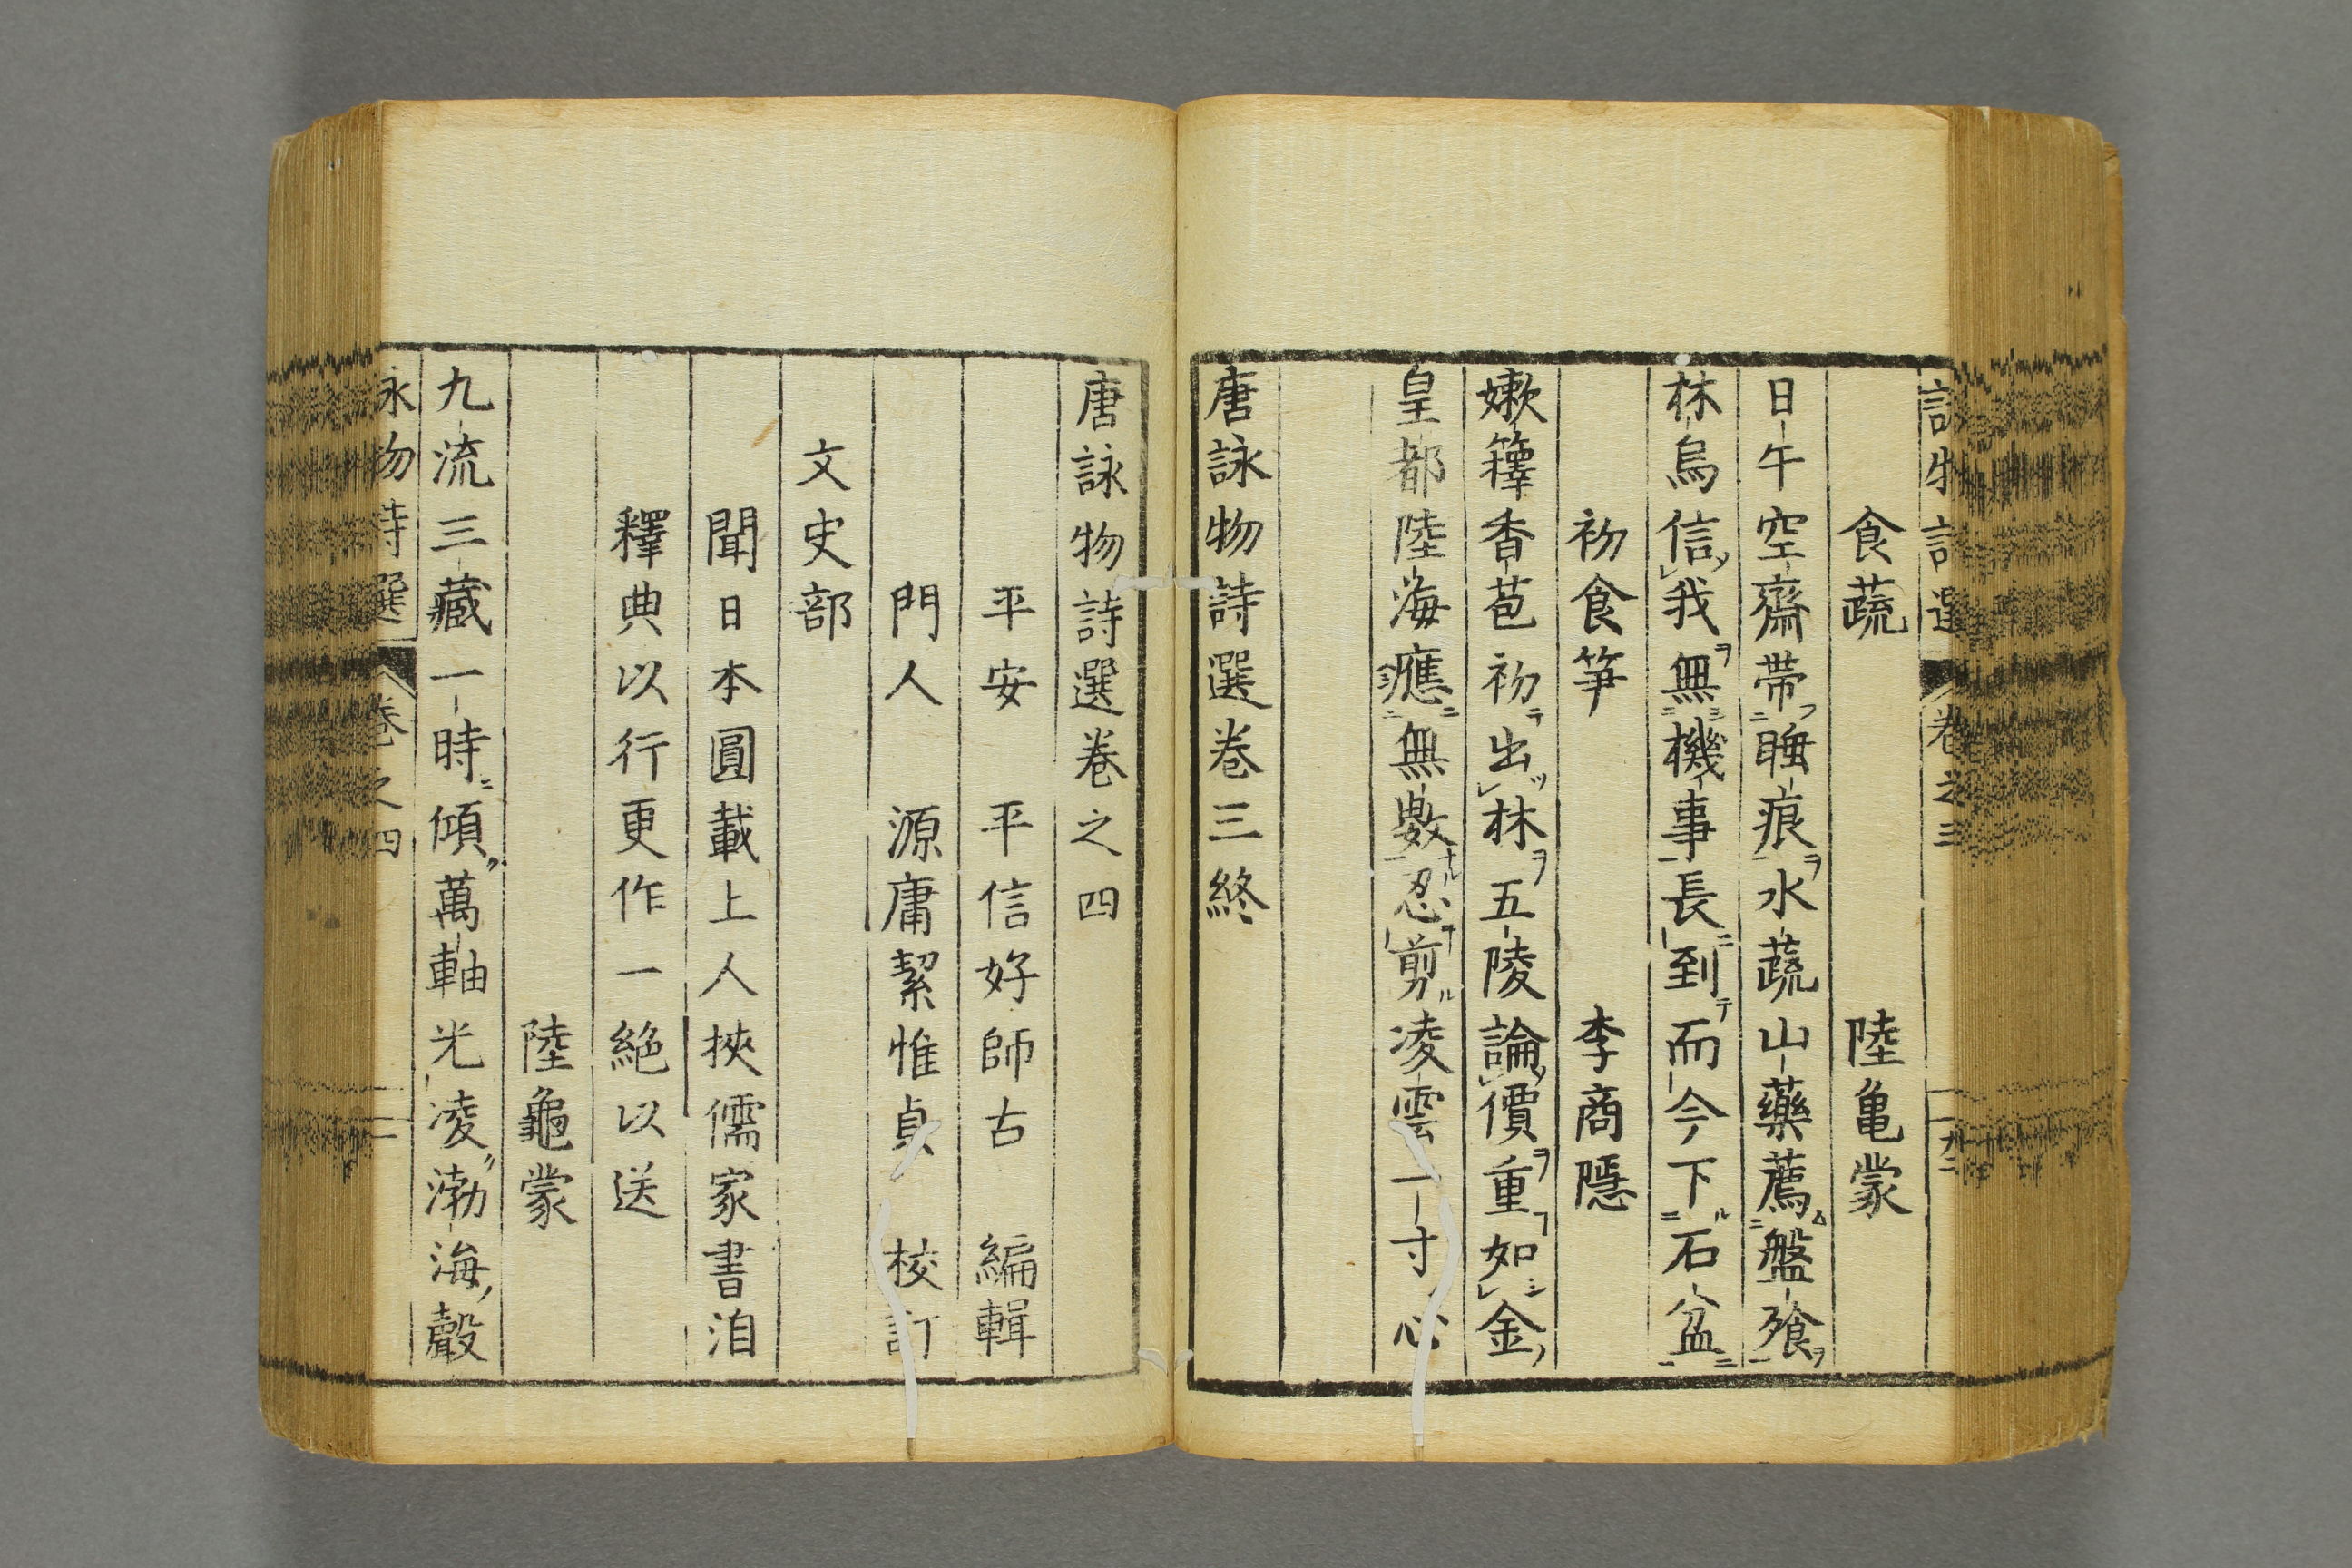 食蔬　陸亀蒙
日午空齋帯睡痕水蔬山藥薦盤飧
林烏信我無機事長到而今下石盆
初食笋　李商隱
嫰籜香苞初出林五陵論價重如金
皇都陸海應無數忍剪凌雲一寸心
唐詠物詩選巻三終
唐詠物詩選巻之四
平安　平信好師古　編輯
門人　源庸絜惟貞　校訂
文史部
聞日本圓載上人挾儒家書洎
釋典以行更作一絕以送
陸龜蒙
九流三藏一時傾萬軸光凌渤海聲